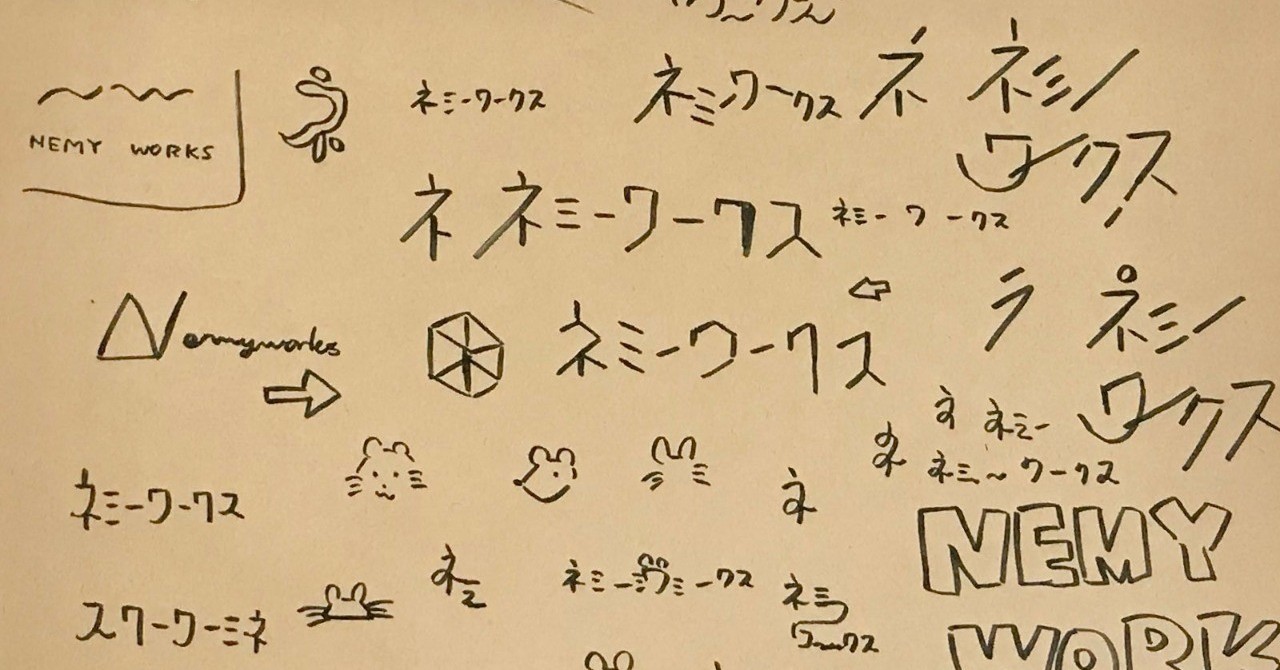 ワークス
ネミーワークス
ネミーワークス
ネ
ネミー
ワークス
NEMY WORKS
ネ ネミーワークス
ネミーワークス
Nemyworks
ネミーワークス
ネミー
ワークス
ネ
ネミー
ネ
ネミ〜ワークス
ネミーワークス
ネ
NEMY
WORK
ネミーワークス
ネミ
ワークス
スクーワーミネ